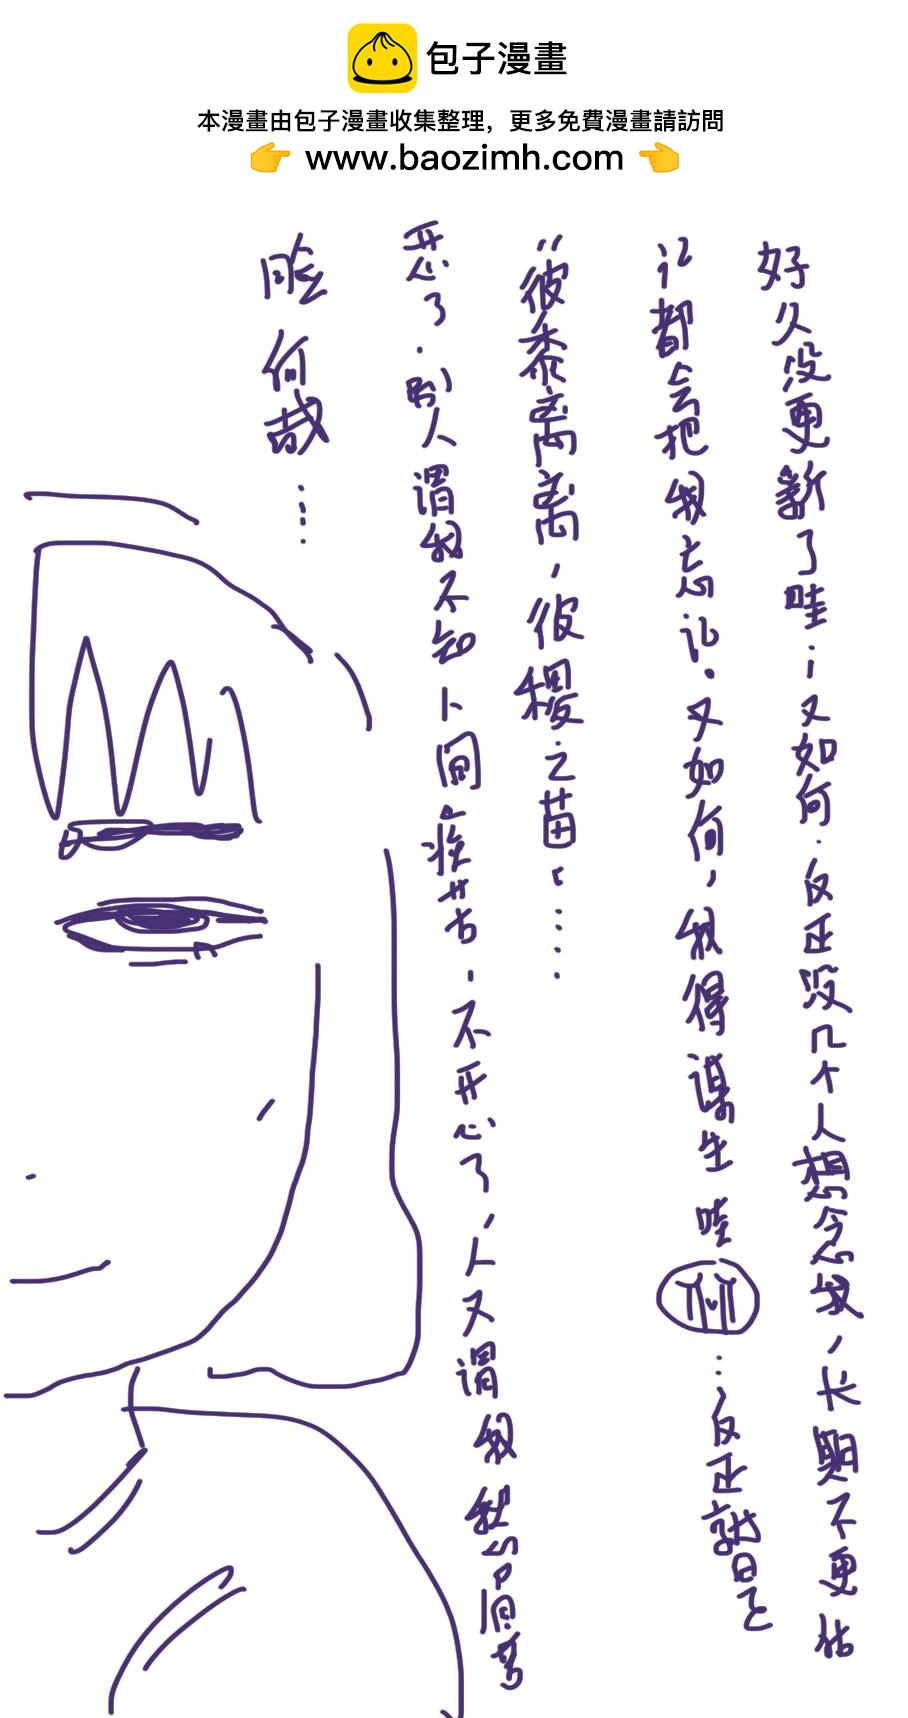 包子漫畫
本漫畫由包子漫畫收集整理，更多免費漫畫請訪問
www.baozimh.com
好久没更新了哇；又如何.反正没几个人想念我，长期不更估
计都会把我忘记.又如何，我得谋生哇…反正就日子
“彼黍离离，彼稷之苗。……
恶了.别人谓我不知人间疾苦，不开心了，人又谓我
脸何哉……